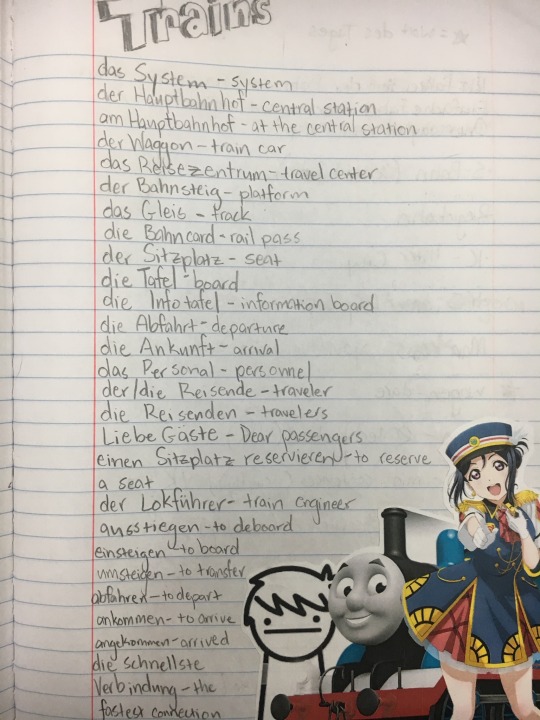 Trains
das System - system
der Hauptbahnhof - central station
am Hauptbahnhof - at the central station
der Waggon - train car
das Reisezentrum - travel center
der Bahnsteig - platform
das Gleis - track
die Bahncard - rail pass
der Sitzplatz - seat
die Tafel - board
die Infotafel - information board
die Abfahrt - departure
die Ankunft - arrival
das Personal - personnel
der/die Reisende - traveler
die Reisenden - travelers
Liebe Gäste - Dear passengers
einen Sitzplatz reservieren - to reserve
a seat
der Lokführer - train engineer
ausstiegen - to deboard
einsteigen - to board
umsteigen - to transfer
abfahren - to depart
ankommen - to arrive
angekommen - arrived
die schnellste
Verbindung - the
fastest connection